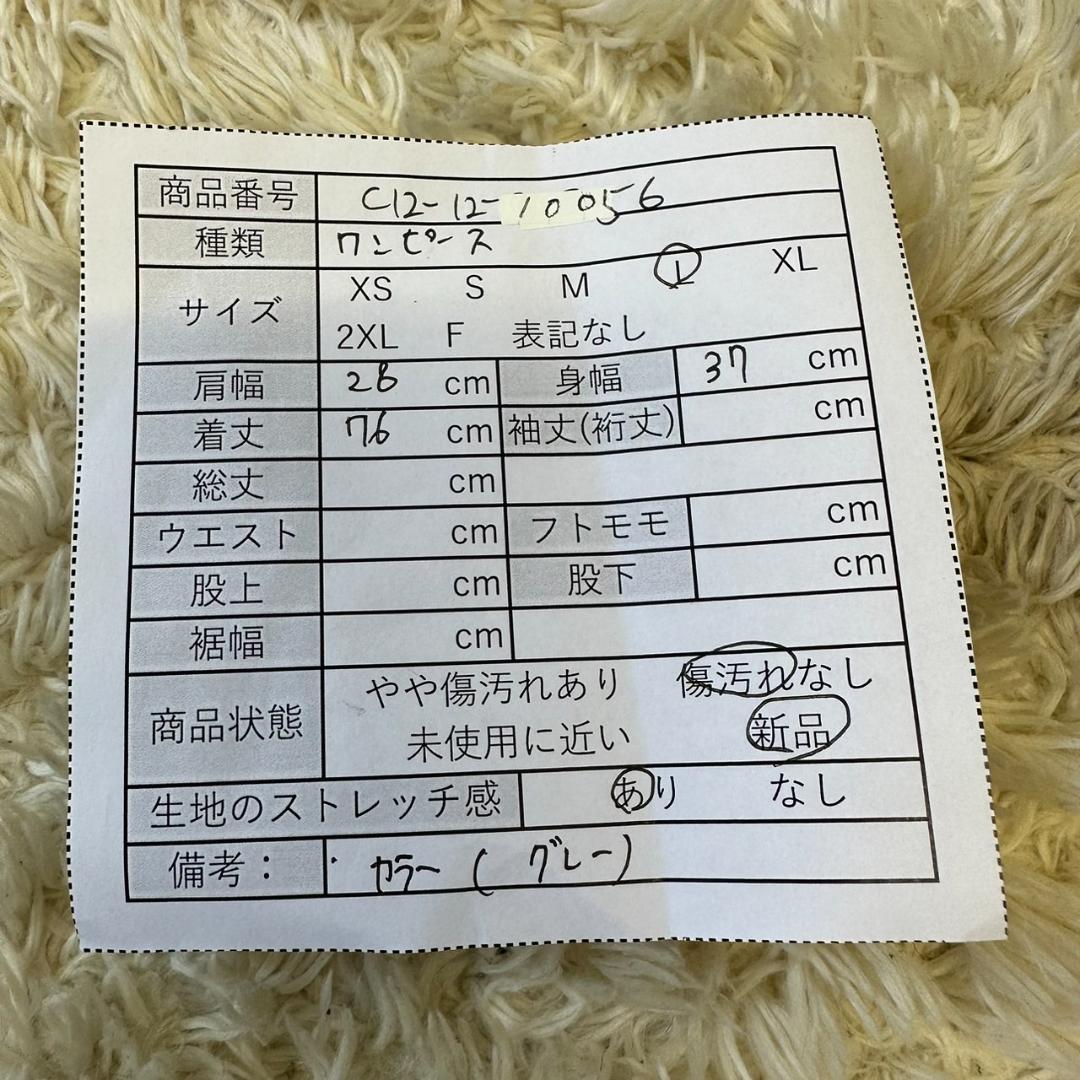 商品番号 C12-12-10056
種類 ワンピース
サイズ XS S M L XL
2XL F 表記なし
肩幅 28 cm 身幅 37 cm
着丈 76 cm 袖丈(裄丈) cm
総丈 cm
ウエスト cm フトモモ cm
股上 cm 股下 cm
裾幅 cm
商品状態 やや傷汚れあり 傷汚れなし
未使用に近い 新品
生地のストレッチ感 あり なし
備考： カラー ( グレー)